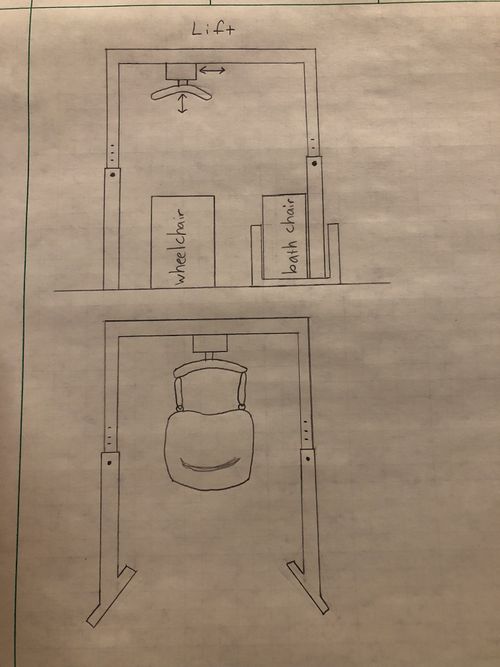 Lift
wheelchair
bath chair